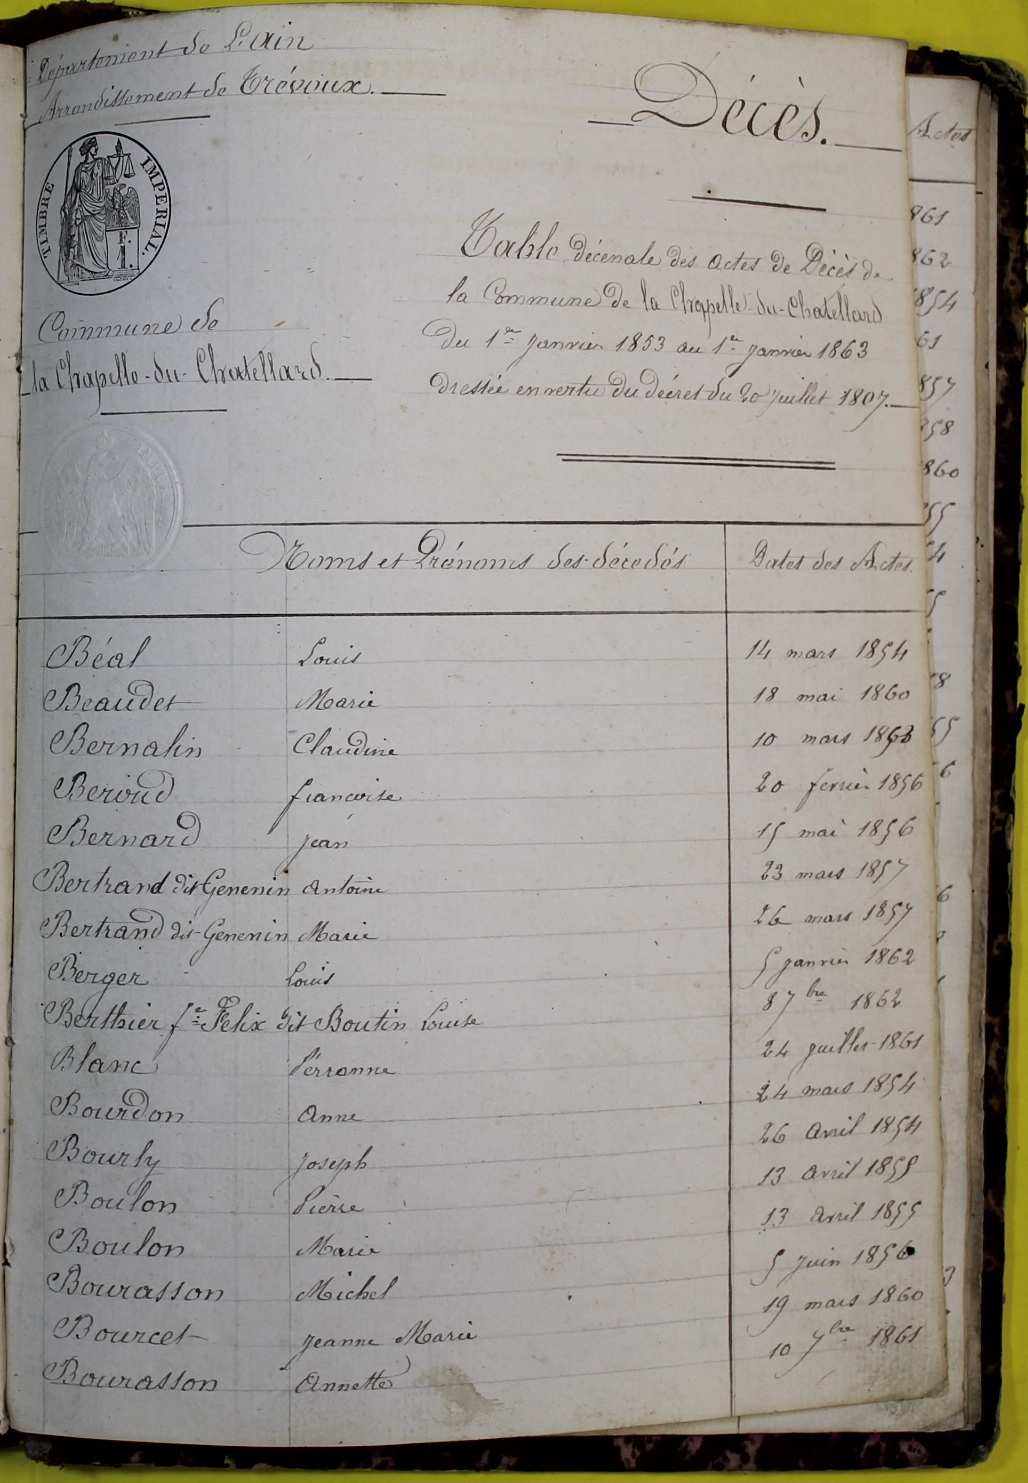 Département de L'Ain
Arrondissement de Trévoux.
Décès.
TIMBRE IMPERIAL.
E. I.
Commune de
la Chapelle-du-Chatellard.
Table décénale des actes de Décès de
la Commune de la Chapelle-du-Chatellard
Du 1er Janvier 1853 au 1er Janvier 1863
dressée en vertu du décret du 20 juillet 1807.
Noms et Prénoms des décedés Dates des Actes.
Béal Louis 14 mars 1854
Beaudet Marie 18 mai 1860
Bernalin Claudine 10 mars 1863
Beroud francoise 20 fevrier 1856
Bernard jean 15 mai 1856
Bertrand dit Genenin Antoine 23 mars 1857
Bertrand dit Genenin Marie 26 mars 1857
Berger Louis 5 janvier 1862
Berthier fe Felix dit Boutin Louise 8 7bre 1862
Blanc Pérronne 24 juillet 1861
Bourdon Anne 24 mars 1854
Bourly Joseph 26 Avril 1854
Boulon Pierre 13 Avril 1855
Boulon Marie 13 Avril 1855
Bourasson Michel 5 Juin 1856
Bourcet Jeanne Marie 19 mars 1860
Bourasson Annette 10 7bre 1861
Actes
861
862
1854
61
857
858
860
55